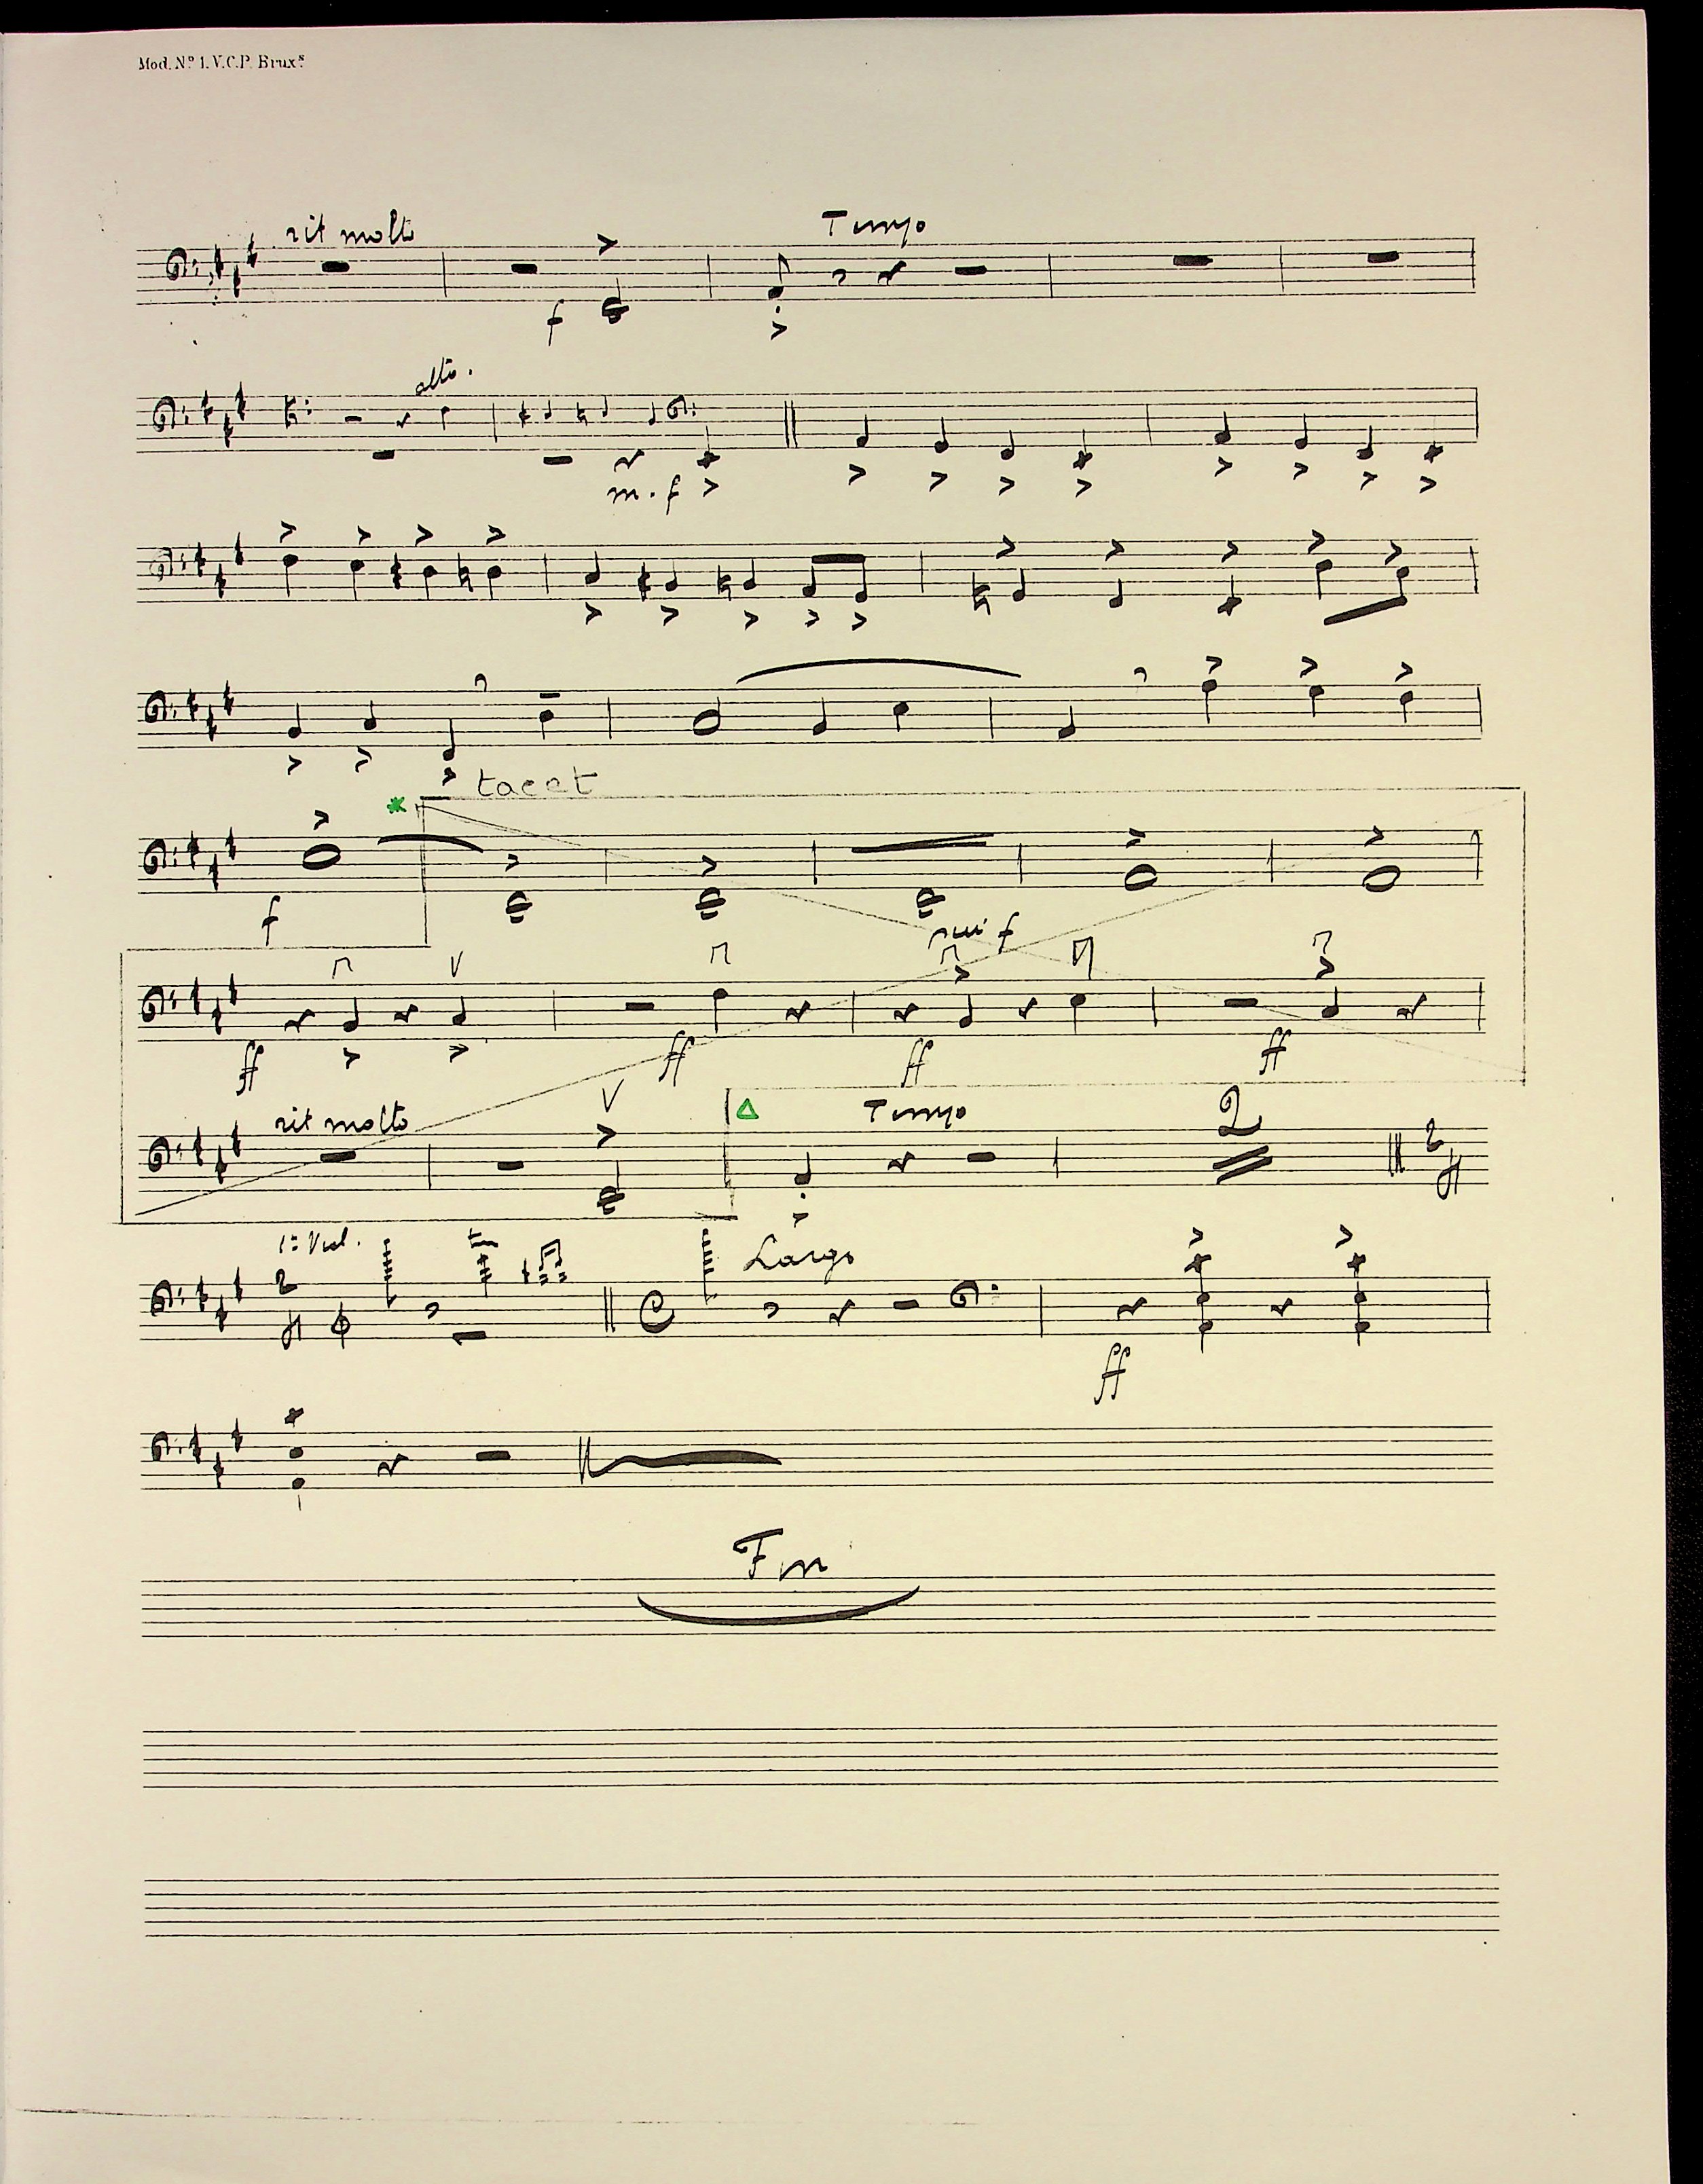 Mod. Nº 1. V.C.P. Bruxˢ
rit molto Tempo
f
alto.
m. f
tacet
*
f più f
ff ff ff ff
rit molto Tempo 2 2
1º Viol. Largo
2 tr
ff
Fin